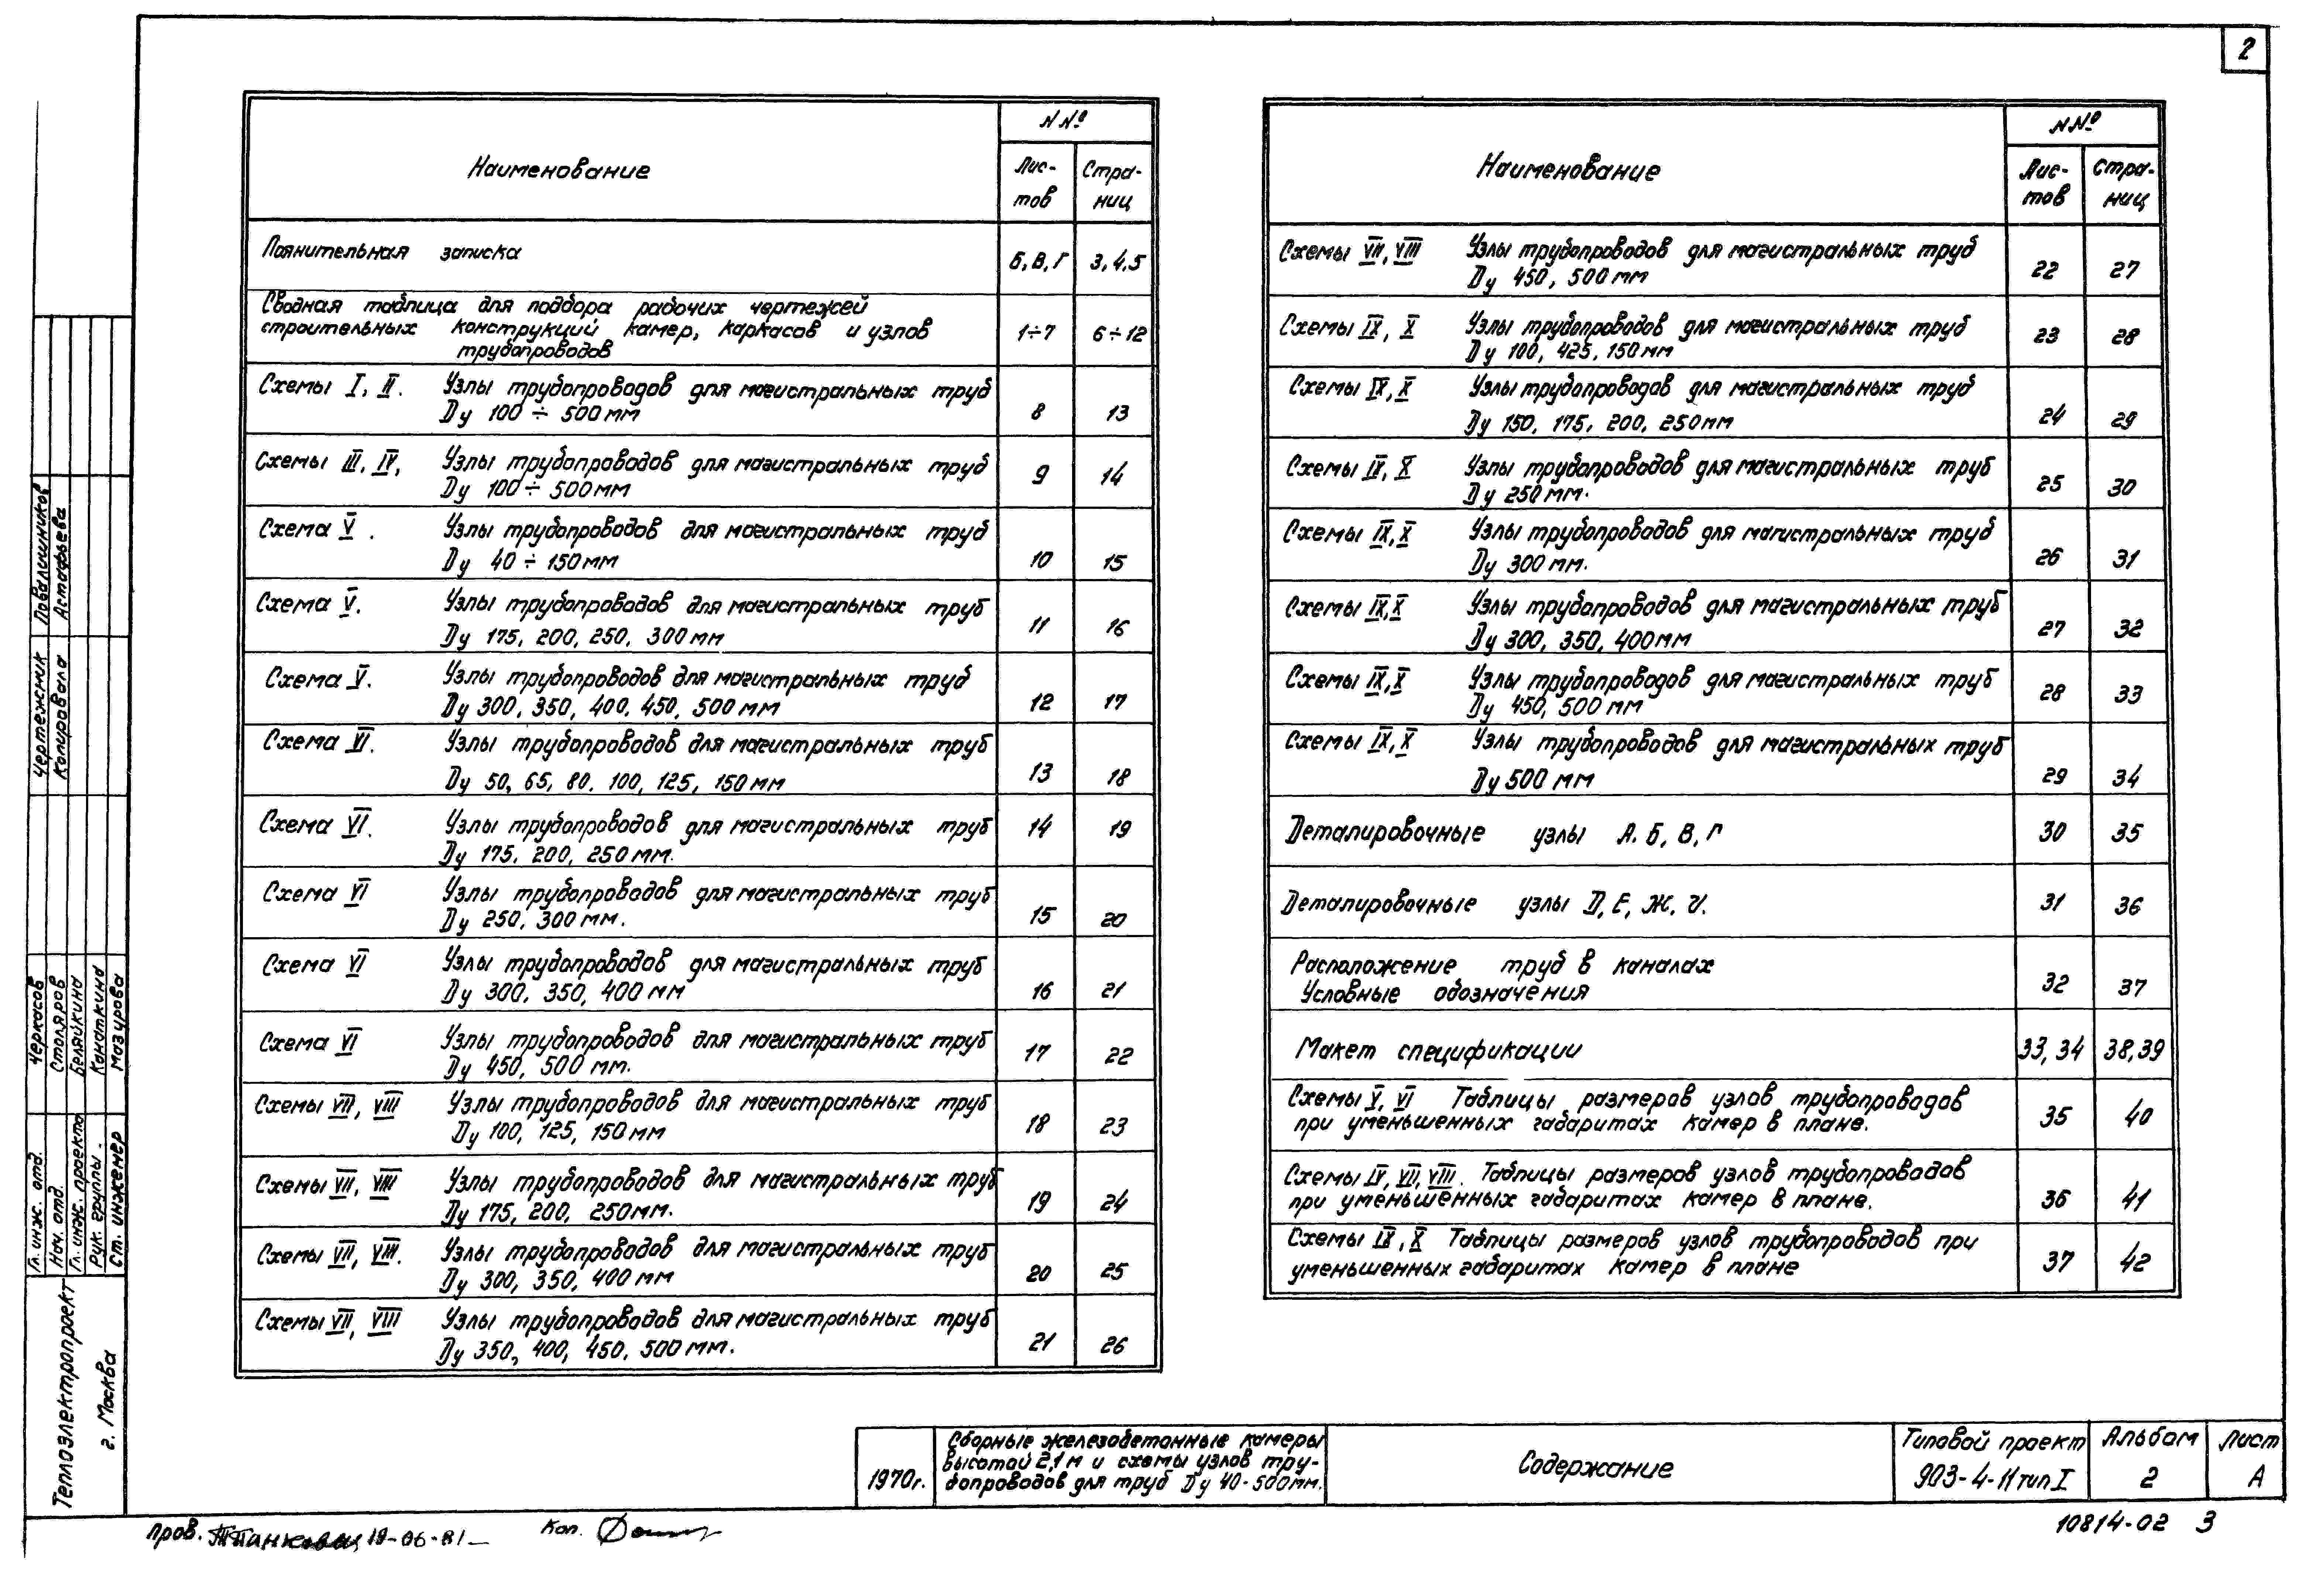 2
Наименование
NNº
Лис-
тов
Стра-
ниц
Паянительная записка
Б, В, Г 3, 4, 5
Сводная таблица для подбора рабочих чертежей
строительных конструкций камер, каркасов и узлов
трубопроводов
1÷7 6÷12
Схемы I, II. Узлы трубопроводов для магистральных труб
Dу 100 ÷ 500 мм
8 13
Схемы III, IV, Узлы трубопроводов для магистральных труб
Dу 100 ÷ 500 мм
9 14
Схема V . Узлы трубопроводов для магистральных труб
Dу 40 ÷ 150 мм
10 15
Схема V. Узлы трубопроводов для магистральных труб
Dу 175, 200, 250, 300 мм
11 16
Схема V. Узлы трубопроводов для магистральных труб
Dу 300, 350, 400, 450, 500 мм
12 17
Схема VI. Узлы трубопроводов для магистральных труб
Dу 50, 65, 80, 100, 125, 150 мм
13 18
Схема VI. Узлы трубопроводов для магистральных труб
Dу 175, 200, 250 мм.
14 19
Схема VI Узлы трубопроводов для магистральных труб
Dу 250, 300 мм.
15 20
Схема VI Узлы трубопроводов для магистральных труб
Dу 300, 350, 400 мм
16 21
Схема VI Узлы трубопроводов для магистральных труб
Dу 450, 500 мм.
17 22
Схемы VII, VIII Узлы трубопроводов для магистральных труб
Dу 100, 125, 150 мм
18 23
Схемы VII, VIII Узлы трубопроводов для магистральных труб
Dу 175, 200, 250 мм.
19 24
Схемы VII, VIII. Узлы трубопроводов для магистральных труб
Dу 300, 350, 400 мм
20 25
Схемы VII, VIII Узлы трубопроводов для магистральных труб
Dу 350, 400, 450, 500 мм.
21 26
Наименование
NNº
Лис-
тов
Стра-
ниц
Схемы VII, VIII Узлы трубопроводов для магистральных труб
Dу 450, 500 мм
22 27
Схемы IX, X Узлы трубопроводов для магистральных труб
Dу 100, 425, 150 мм
23 28
Схемы IX, X Узлы трубопроводов для магистральных труб
Dу 150, 175, 200, 250 мм
24 29
Схемы IX, X Узлы трубопроводов для магистральных труб
Dу 250 мм.
25 30
Схемы IX, X Узлы трубопроводов для магистральных труб
Dу 300 мм.
26 31
Схемы IX, X Узлы трубопроводов для магистральных труб
Dу 300, 350, 400 мм
27 32
Схемы IX, X Узлы трубопроводов для магистральных труб
Dу 450, 500 мм
28 33
Схемы IX, X Узлы трубопроводов для магистральных труб
Dу 500 мм
29 34
Деталировочные узлы А. Б, В, Г
30 35
Деталировочные узлы D, Е, Ж, И.
31 36
Расположение труб в каналах
Условные обозначения
32 37
Макет спецификации
33, 34 38, 39
Схемы V, VI Таблицы размеров узлов трубопроводов
при уменьшенных габаритах камер в плане.
35 40
Схемы IV, VII, VIII. Таблицы размеров узлов трубопроводов
при уменьшенных габаритах камер в плане.
36 41
Схемы IX, X Таблицы размеров узлов трубопроводов при
уменьшенных габаритах камер в плане
37 42
Чертежник Повалишников
Копировала Астафьева
Гл. инж. отд. Черкасов
Нач. отд. Столяров
Гл. инж. проекта Беляйкина
Рук. группы. Канаткина
Ст. инженер Мазурова
Теплоэлектропроект
г. Москва
1970г.
Сборные железобетонные камеры
высотой 2,1 м и схемы узлов тру-
бопроводов для труб Dу 40-500мм.
Содержание
Типовой проект
903-4-11 тип I
Альбом
2
Лист
А
Пров. 19-06-81
Коп.
10814-02 3